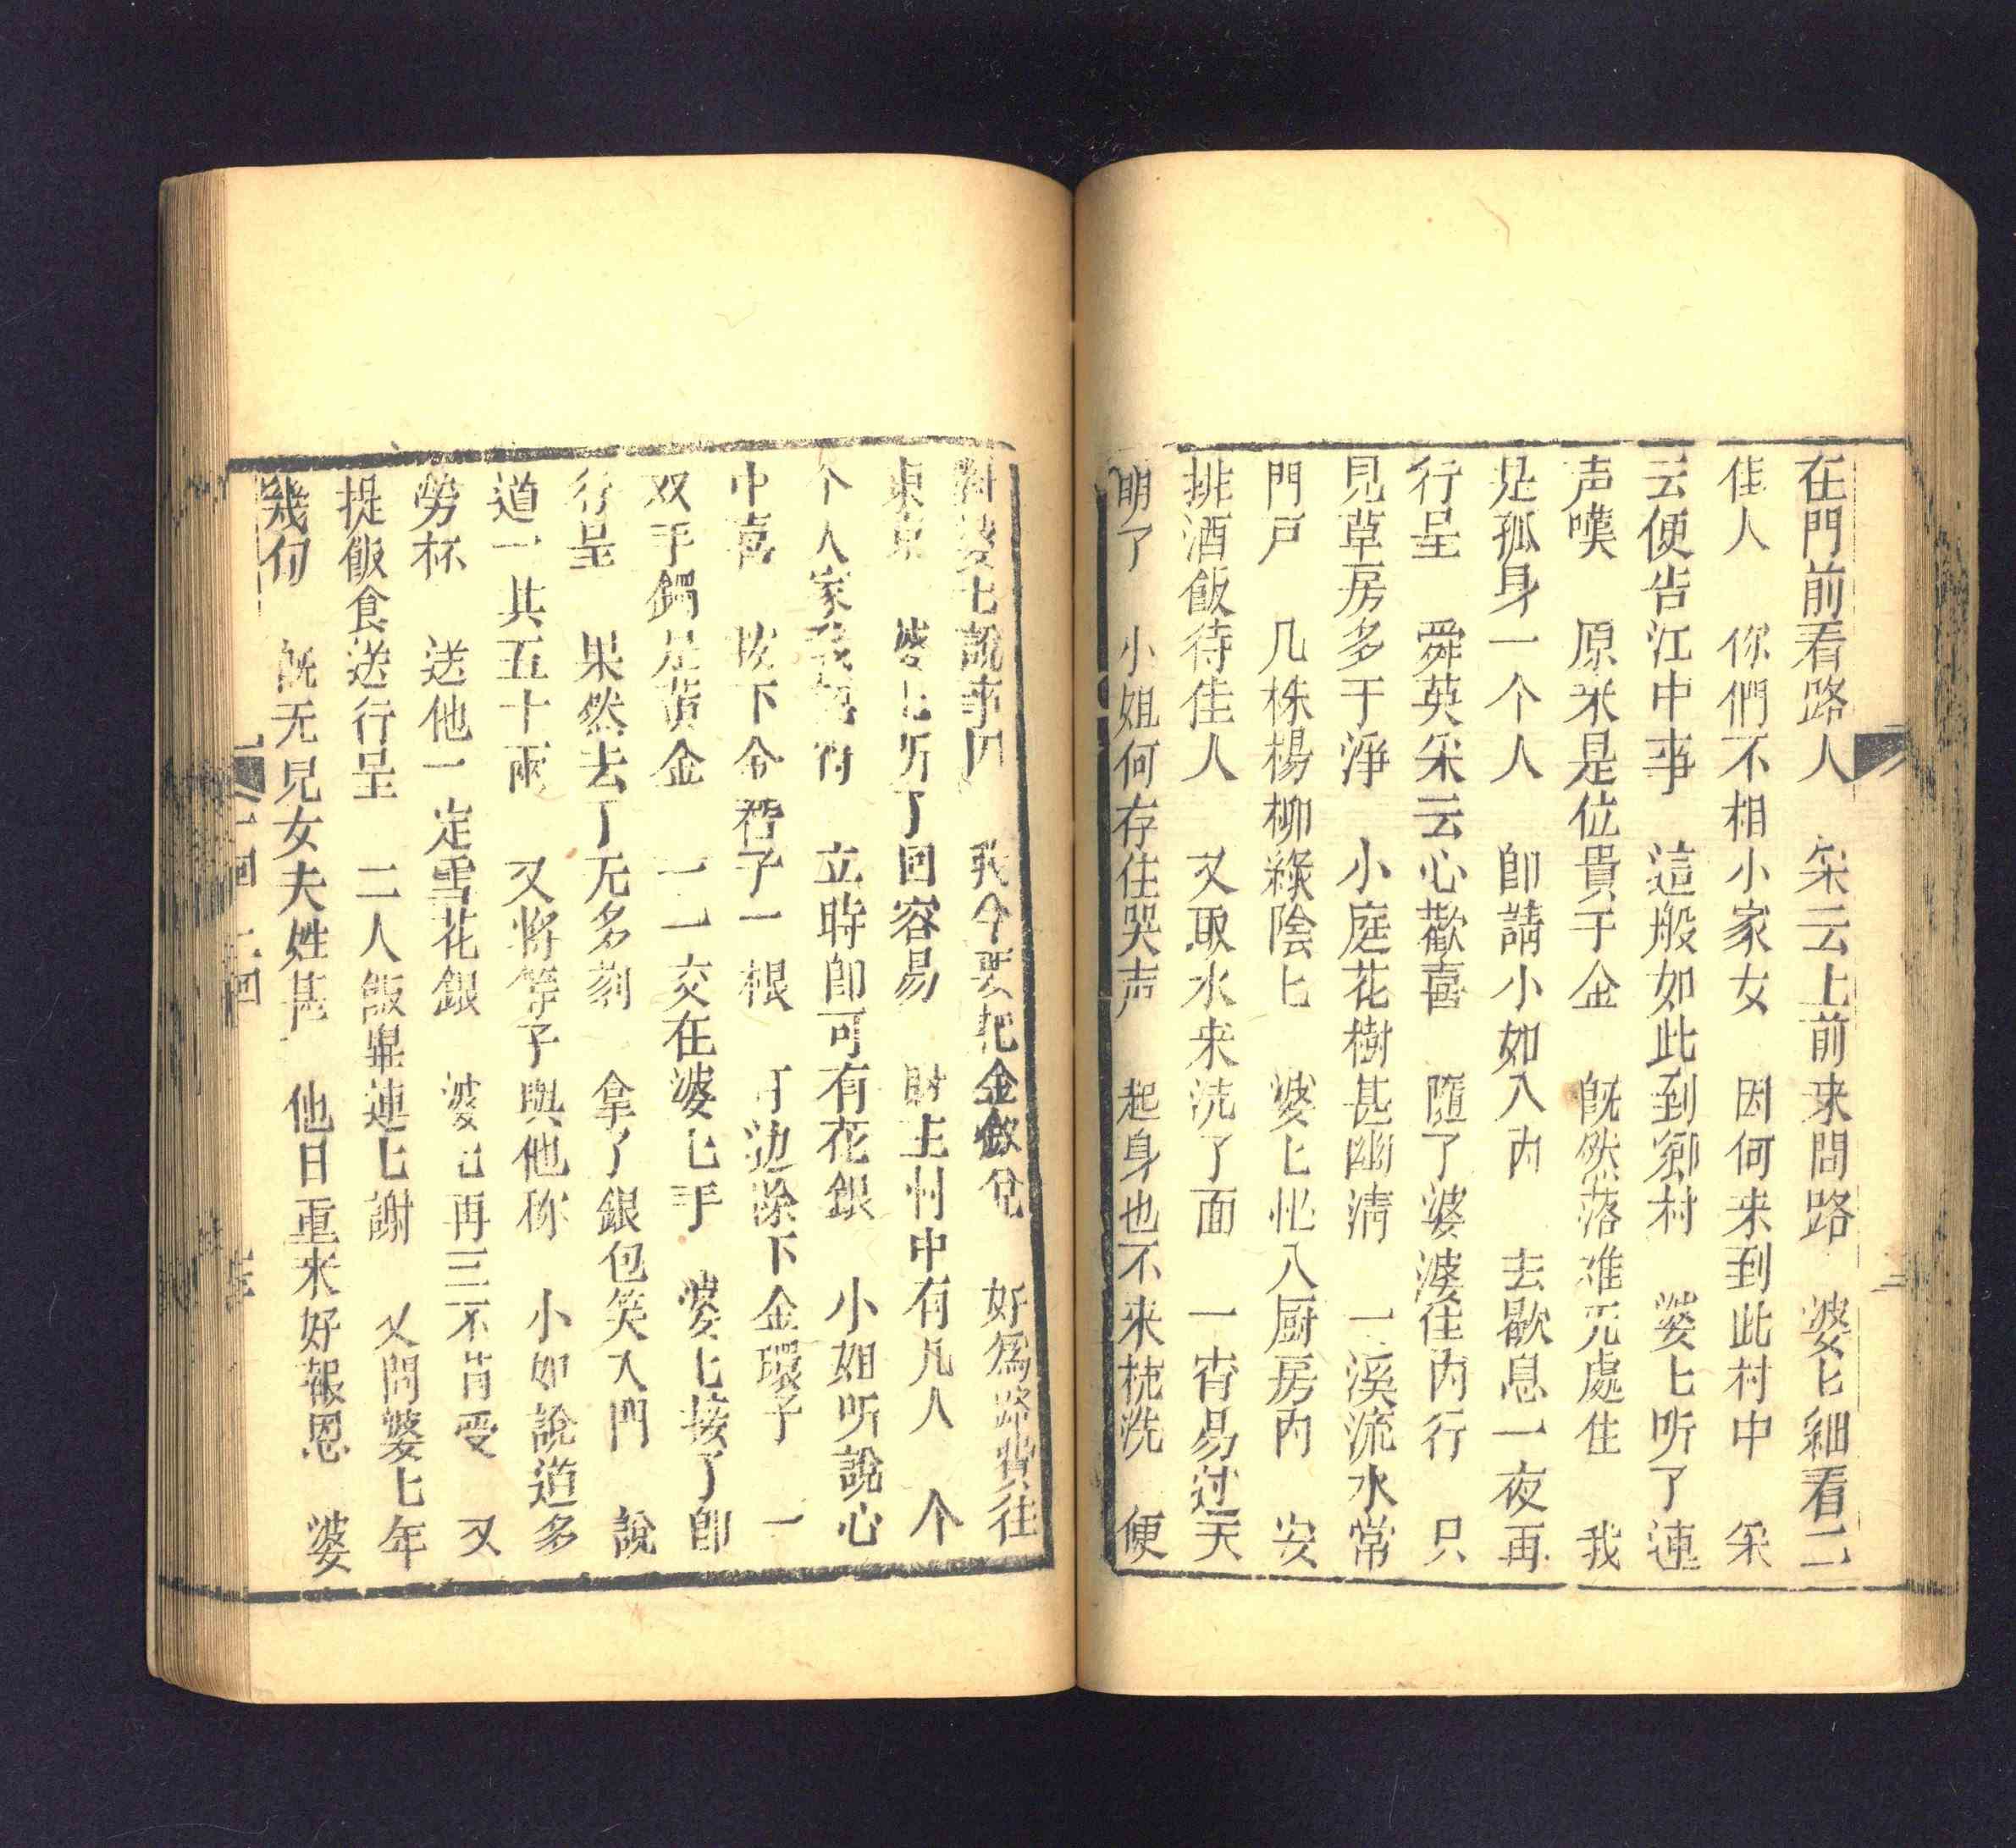 在門前看路人　采云上前来問路　婆匕細看二
佳人　你們不相小家女　因何来到此村中　采
云便告江中事　這般如此到鄉村　婆匕听了連
声嘆　原来是位貴千金　既然落难无處住　我
是孤身一个人　卽請小姐入內　去歇息一夜再
行呈　舜英采云心歡喜　隨了婆婆往內行　只
見草房多干淨　小庭花樹甚幽清　一溪流水常
門戸　几株楊柳綠陰匕　婆匕忙入厨房內　安
排酒飯待佳人　又取水来洗了面　一宵易过天
明了　小姐何存住哭声　起身也不来梳洗　便
對婆匕說事因　我今要把金釵兌　好為路費往
東京　婆匕听了回容易　財主村中有几人　个
个人家我認得　立時卽可有花銀　小姐听說心
中喜　拔下金簪子一根　耳边除下金環子　一
双手鐲是黃金　一一交在婆匕手　婆匕接了卽
行呈　果然去了无多刻　拿了銀包笑入門　說
道一共五十兩　又將等子與他称　小姐說道多
勞杯　送他一定雪花銀　婆匕再三不肯受　又
提飯食送行呈　二人飯畢連匕謝　又問婆匕年
幾旬　旣无兒女夫姓甚　他日重来好報恩　婆